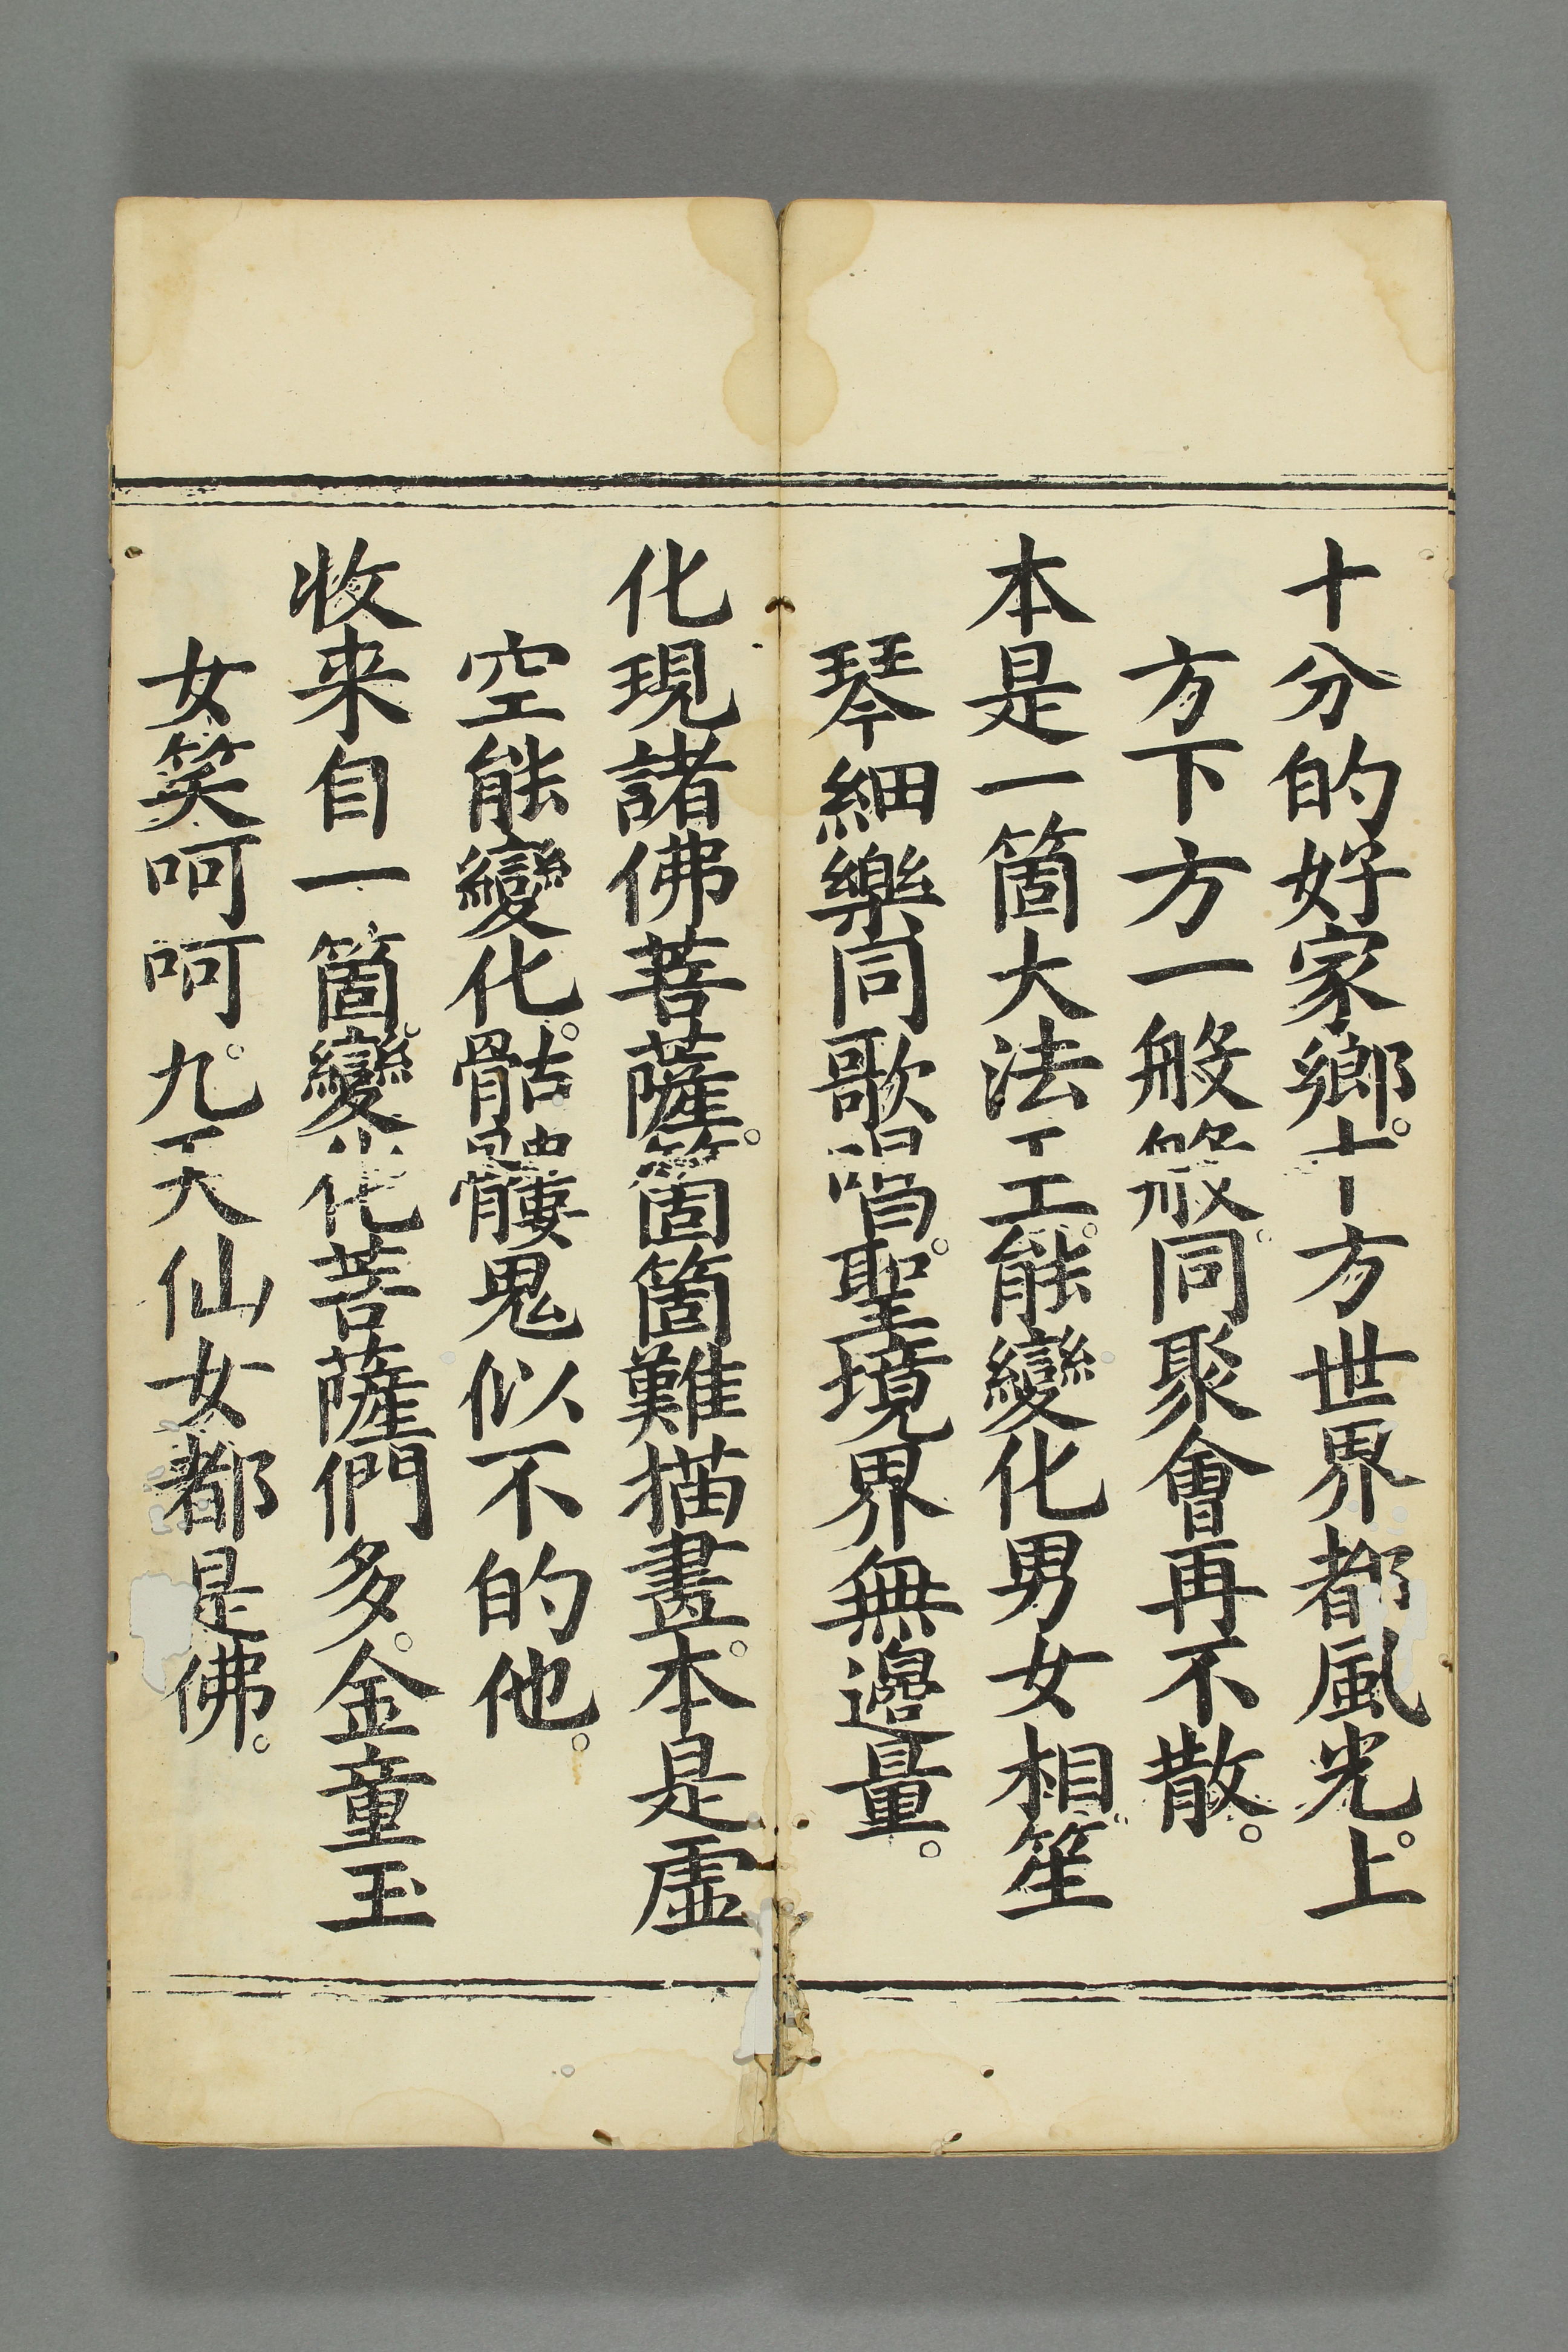 十分的好家鄉。十方世界都風光。上
方下方一般般。同聚會再不散。
本是一箇大法王。能變化男女相。笙
琴細樂同歌唱。聖境界無邊量。
化現諸佛菩薩。箇箇難描畫。本是虛
空能變化。骷髏鬼似不的他。
收来自一箇。變化菩薩們多。金童玉
女笑呵呵。九天仙女都是佛。